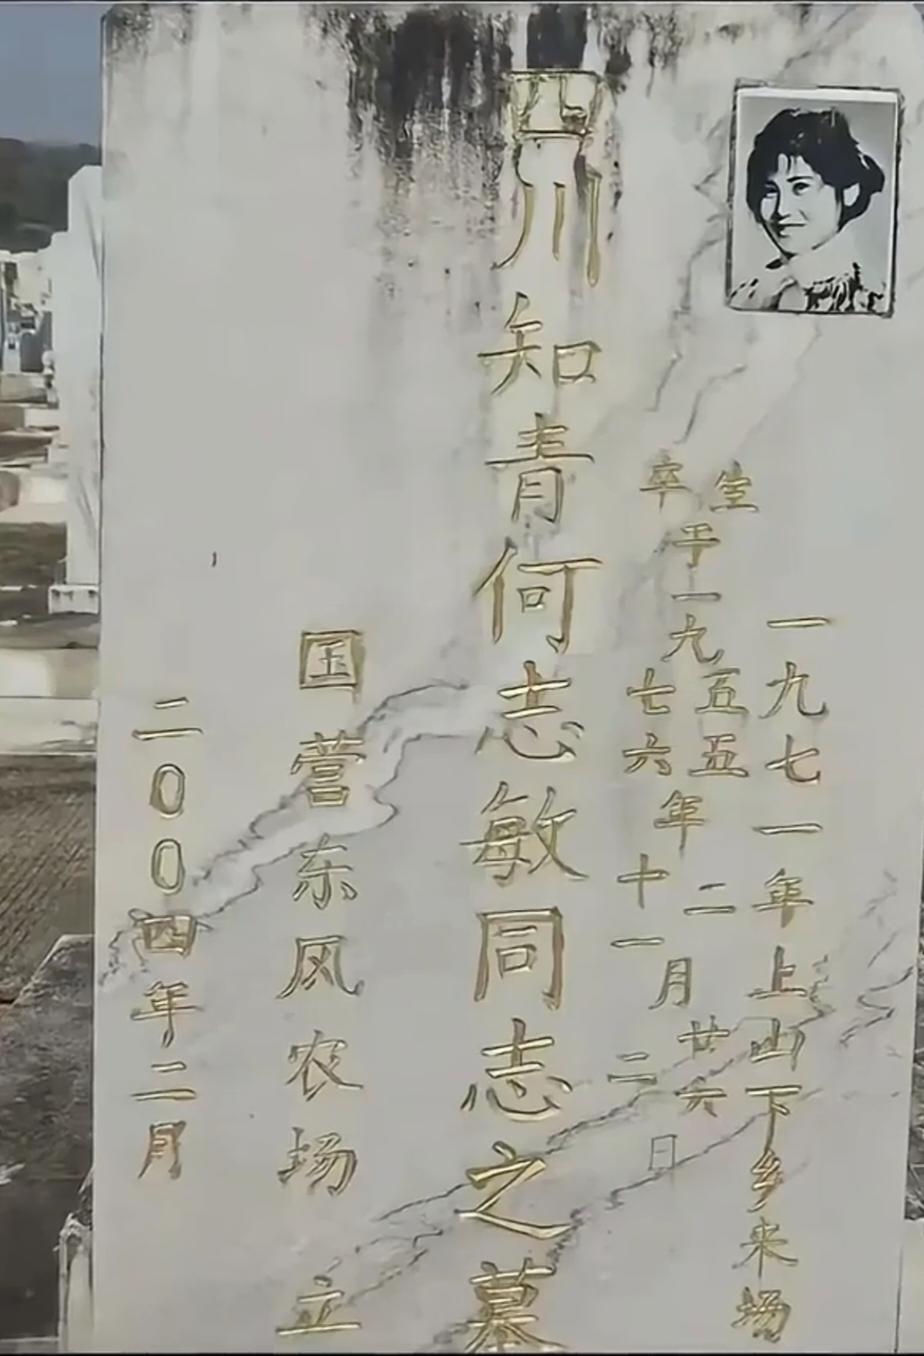 一九七一年上山下乡来场
生于一九五五年二月廿六日
卒于一九七六年十一月二日
四川知青何志敏同志之墓
国营东风农场 立
二〇〇四年二月